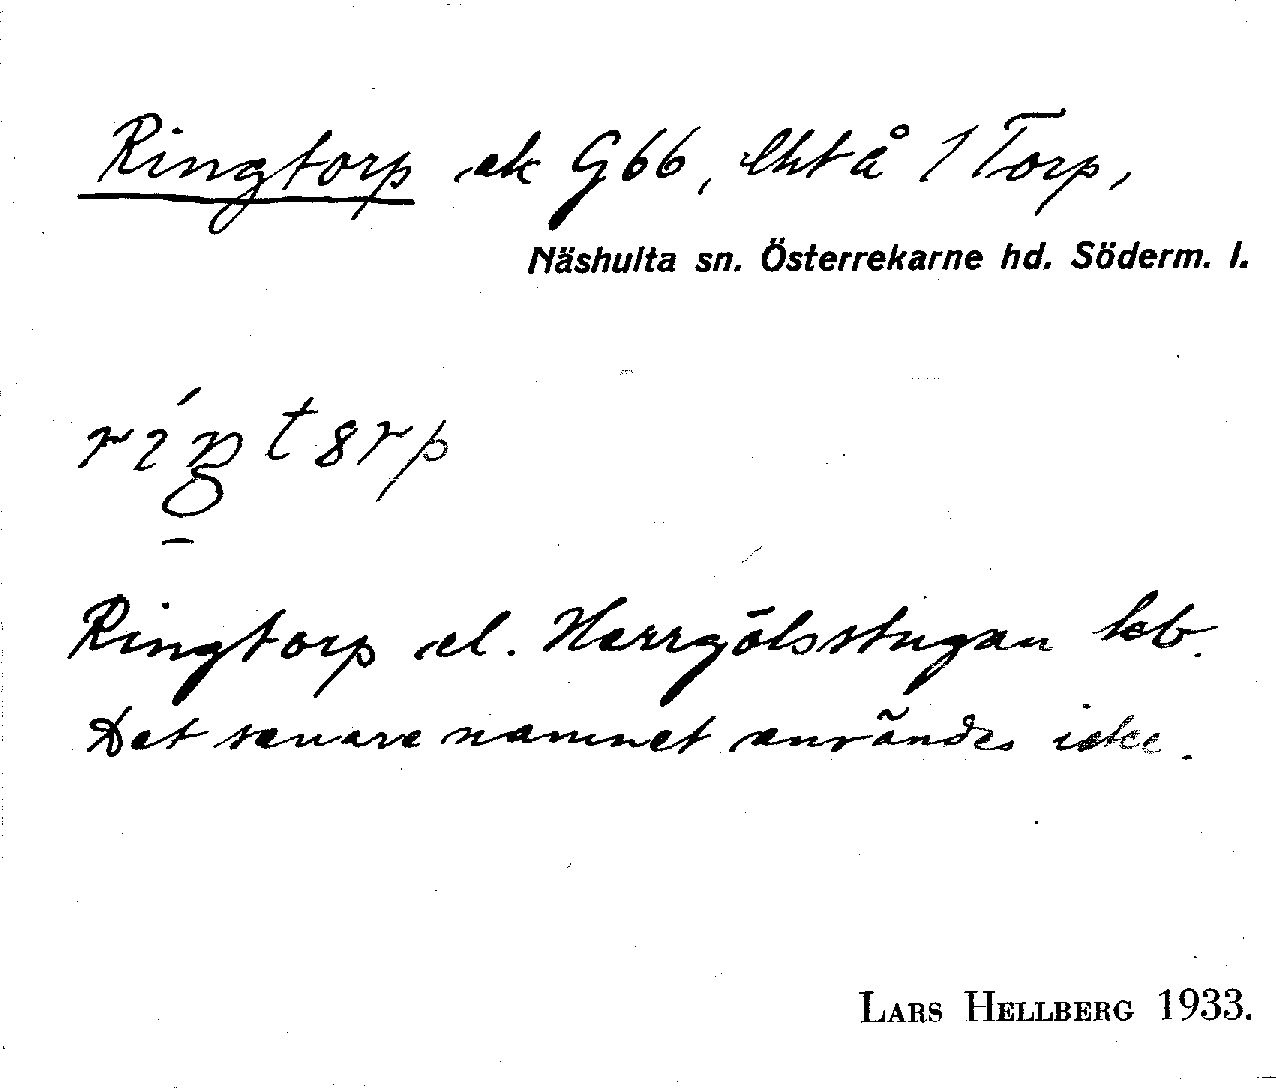 Ringtorp ek G66, Ehtå 1 Torp,
Näshulta sn. Österrekarne hd. Söderm. l.
Ringtorp el. Herrgölsstugan kb.
Det senare namnet användes icke.
LARS HELLBERG 1933.